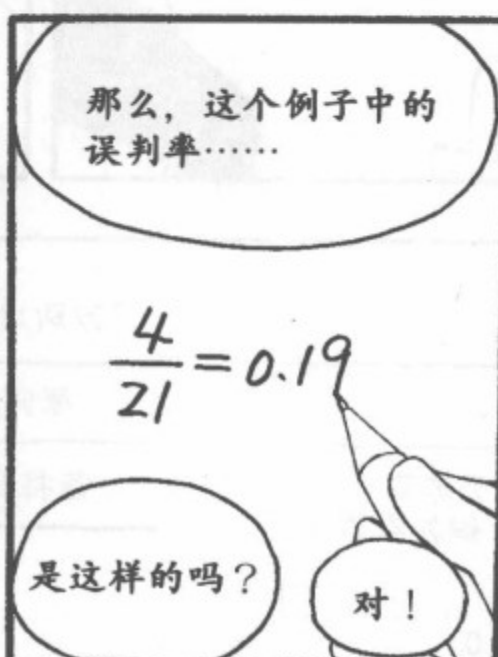 那么，这个例子中的
误判率……
4/21 = 0.19
是这样的吗？
对！